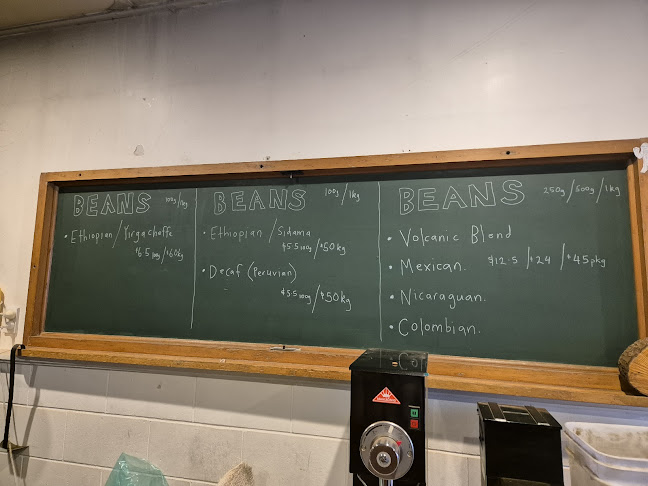 BEANS 100g/1kg
• Ethiopian/Yirgacheffe
$6.5 100g/$60kg
BEANS 100g/1kg
• Ethiopian/Sidama
$5.5 100g/$50kg
• Decaf (Peruvian)
$5.5 100g/$50kg
BEANS 250g/500g/1kg
• Volcanic Blend
• Mexican. $12.5/$24/$45pkg
• Nicaraguan.
• Colombian.